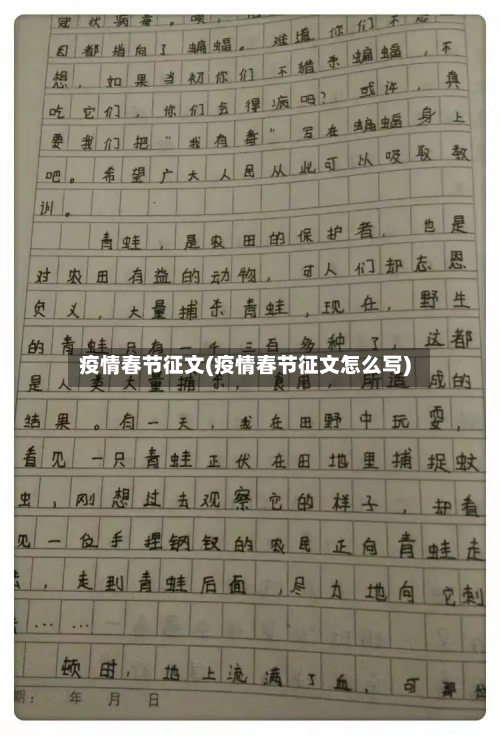 冠状病毒。唉，
目都指向了蝙蝠。难道你们不想
想，如果当初你们不猎杀蝙蝠，不
吃它们，你们会得病吗？或许，真
要我们把“我有毒”写在蝙蝠身上
吧。希望广大人民从此可以吸取教
训。
青蛙，是农田的保护者，也是
对农田有益的动物，可人们却忘恩
负义，大量捕杀青蛙，现在，野生
的青蛙只有一千三百多种了，这都
疫情春节征文(疫情春节征文怎么写)
是人类大量捕杀，食用，所造成的
结果。有一天，我在田野中玩耍，
看见一只青蛙正伏在田地里捕捉蚊
虫，刚想过去观察它的样子，却看
见一位手握钢钗的农民正向青蛙走
去，走到青蛙后面，尽力地向它刺
去……
顿时，地上流满了血，可那位
期： 年 月 日